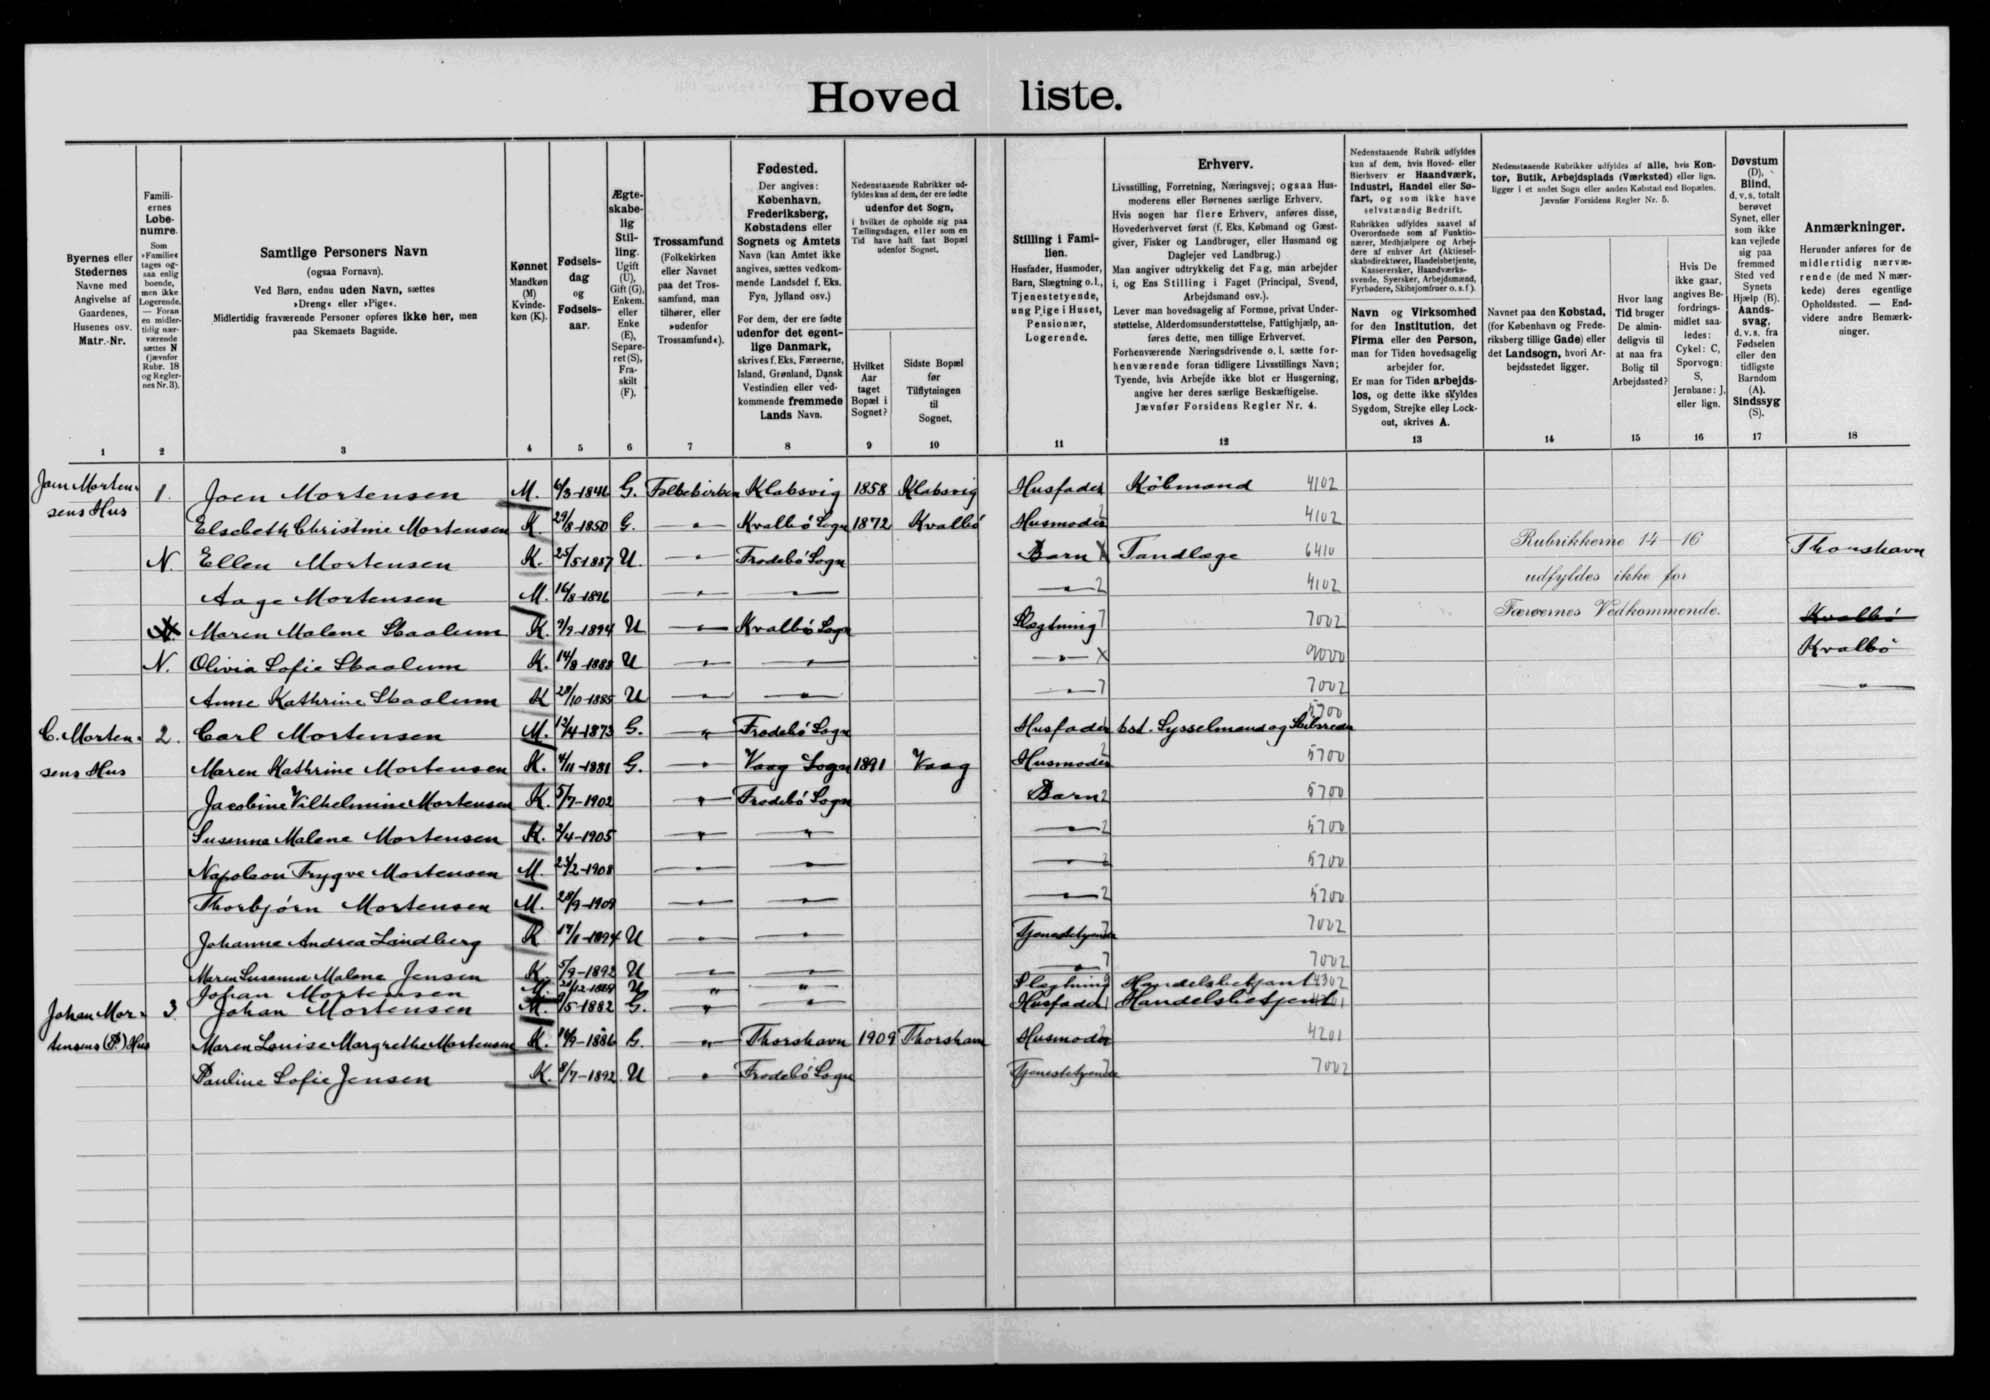 Hoved liste.
Byernes eller Stedernes Navne med Angivelse af Gaardenes, Husenes osv. Matr.-Nr.
Familiernes Løbenumre. Som »Familie« tages ogsaa enlig boende, men ikke Logerende. — Foran en midlertidig nærværende sættes N (jævnfør Rubr. 18 og Reglernes Nr. 3).
Samtlige Personers Navn (ogsaa Fornavn). Ved Børn, endnu uden Navn, sættes »Dreng« eller »Pige«. Midlertidig fraværende Personer opføres ikke her, men paa Skemaets Bagside.
Kønnet Mandkøn (M) Kvindekøn (K).
Fødselsdag og Fødselsaar.
Ægteskabelig Stilling. Ugift (U), Gift (G), Enkem. eller Enke (E), Separeret (S), Fraskilt (F).
Trossamfund (Folkekirken eller Navnet paa det Trossamfund, man tilhører, eller »udenfor Trossamfund«).
Fødested. Der angives: København, Frederiksberg, Købstadens eller Sognets og Amtets Navn (kan Amtet ikke angives, sættes vedkommende Landsdel f. Eks. Fyn, Jylland osv.) For dem, der ere fødte udenfor det egentlige Danmark, skrives f. Eks. Færøerne, Island, Grønland, Dansk Vestindien eller vedkommende fremmede Lands Navn.
Nedenstaaende Rubrikker udfyldes kun af dem, der ere fødte udenfor det Sogn, i hvilket de opholde sig paa Tællingsdagen, eller som en Tid have haft fast Bopæl udenfor Sognet.
Hvilket Aar taget Bopæl i Sognet?
Sidste Bopæl før Tilflytningen til Sognet.
Stilling i Familien. Husfader, Husmoder, Barn, Slægtning o. l., Tjenestetyende, ung Pige i Huset, Pensionær, Logerende.
Erhverv. Livsstilling, Forretning, Næringsvej; ogsaa Husmoderens eller Børnenes særlige Erhverv. Hvis nogen har flere Erhverv, anføres disse, Hovederhvervet først (f. Eks. Købmand og Gæstgiver, Fisker og Landbruger, eller Husmand og Daglejer ved Landbrug.) Man angiver udtrykkelig det Fag, man arbejder i, og Ens Stilling i Faget (Principal, Svend, Arbejdsmand osv.). Lever man hovedsagelig af Formue, privat Understøttelse, Alderdomsunderstøttelse, Fattighjælp, anføres dette, men tillige Erhvervet. Forhenværende Næringsdrivende o. l. sætte forhenværende foran tidligere Livsstillings Navn; Tyende, hvis Arbejde ikke blot er Husgerning, angive her deres særlige Beskæftigelse. Jævnfør Forsidens Regler Nr. 4.
Nedenstaaende Rubrik udfyldes kun af dem, hvis Hoved- eller Bierhverv er Haandværk, Industri, Handel eller Søfart, og som ikke have selvstændig Bedrift. Rubrikken udfyldes saavel af Overordnede som af Funktionærer, Medhjælpere og Arbejdere af enhver Art (Aktieselskabsdirektører, Handelsbetjente, Kassererske, Haandværkssvende, Syersker, Arbejdsmænd, Fyrbødere, Skibsjomfruer o. s. f.).
Navn og Virksomhed for den Institution, det Firma eller den Person, man for Tiden hovedsagelig arbejder for. Er man for Tiden arbejdsløs, og dette ikke skyldes Sygdom, Strejke eller Lockout, skrives A.
Nedenstaaende Rubrikker udfyldes af alle, hvis Kontor, Butik, Arbejdsplads (Værksted) eller lign. ligger i et andet Sogn eller anden Købstad end Bopælen. Jævnfør Forsidens Regler Nr. 5.
Navnet paa den Købstad, (for København og Frederiksberg tillige Gade) eller det Landsogn, hvori Arbejdsstedet ligger.
Hvor lang Tid bruger De almindeligvis til at naa fra Bolig til Arbejdssted?
Hvis De ikke gaar, angives Befordringsmidlet saaledes: Cykel: C, Sporvogn: S, Jernbane: J, eller lign.
Døvstum (D), Blind, d. v. s. totalt berøvet Synet, eller som ikke kan vejlede sig paa fremmed Sted ved Synets Hjælp (B). Aandssvag, d. v. s. fra Fødselen eller den tidligste Barndom (A). Sindssyg (S).
Anmærkninger. Herunder anføres for de midlertidig nærværende (de med N mærkede) deres egentlige Opholdssted. — Endvidere andre Bemærkninger.
1 2 3 4 5 6 7 8 9 10 11 12 13 14 15 16 17 18
Joen Mortensens Hus 1. Joen Mortensen M. 6/3-1841 G. Folkekirken Klaksvig 1858 Klaksvig Husfader Købmand 4102
Elsebeth Christine Mortensen K. 29/8-1850 G. — " — Kvalbö Sogn 1872 Kvalbö Husmoder 2 4102
N. Ellen Mortensen K. 25/5-1887 U. — " — Frodebö Sogn Barn X Tandlæge 6410 Rubrikkerne 14-16 Thorshavn
Aage Mortensen M. 16/8-1896 — " — — " — — " — 2 4102 udfyldes ikke for
N. Maren Malene Skaalum K. 9/9-1894 U — " — Kvalbö Sogn Slægtning 7 7002 Færøernes Vedkommende. Kvalbö
N. Olivia Sofie Skaalum K. 14/8-1888 U — " — — " — — " — X 9000 Kvalbö
Anne Kathrine Skaalum K 28/10-1885 U — " — — " — — " — 7 7002 — " —
C. Mortensens Hus 2. Carl Mortensen M. 12/4-1873 G. — " — Frodebö Sogn Husfader bst. Sysselmand og Skibsreder 5700
Maren Kathrine Mortensen K. 4/11-1881 G. — " — Vaag Sogn 1891 Vaag Husmoder 2 5700
Jacobine Vilhelmine Mortensen K. 5/7-1902 — " — Frodebö Sogn Barn 2 5700
Susanna Malene Mortensen K. 2/4-1905 — " — — " — — " — 2 5700
Napoleon Trygve Mortensen M. 23/2-1908 — " — — " — — " — 2 5700
Thorbjørn Mortensen M. 28/9-1909 — " — — " — — " — 2 5700
Johanne Andrea Lindberg K 17/1-1894 U — " — — " — Tjenestetyende 7 7002
Maren Susanne Malene Jensen K. 5/9-1892 U — " — — " — — " — 7 7002
Johan Mortensen M. 21/12-1889 U " " Slægtning Handelsbetjent 4302
Johan Mortensens (P.) Hus 3. Johan Mortensen M. 9/5-1882 G. — " — — " — Husfader 1 Handelsbetjent 4201
Maren Louise Margrethe Mortensen K. 14/9-1886 G. — " — Thorshavn 1909 Thorshavn Husmoder 2 4201
Pauline Sofie Jensen K. 8/7-1892 U — " — Frodebö Sogn Tjenestetyende 7 7002